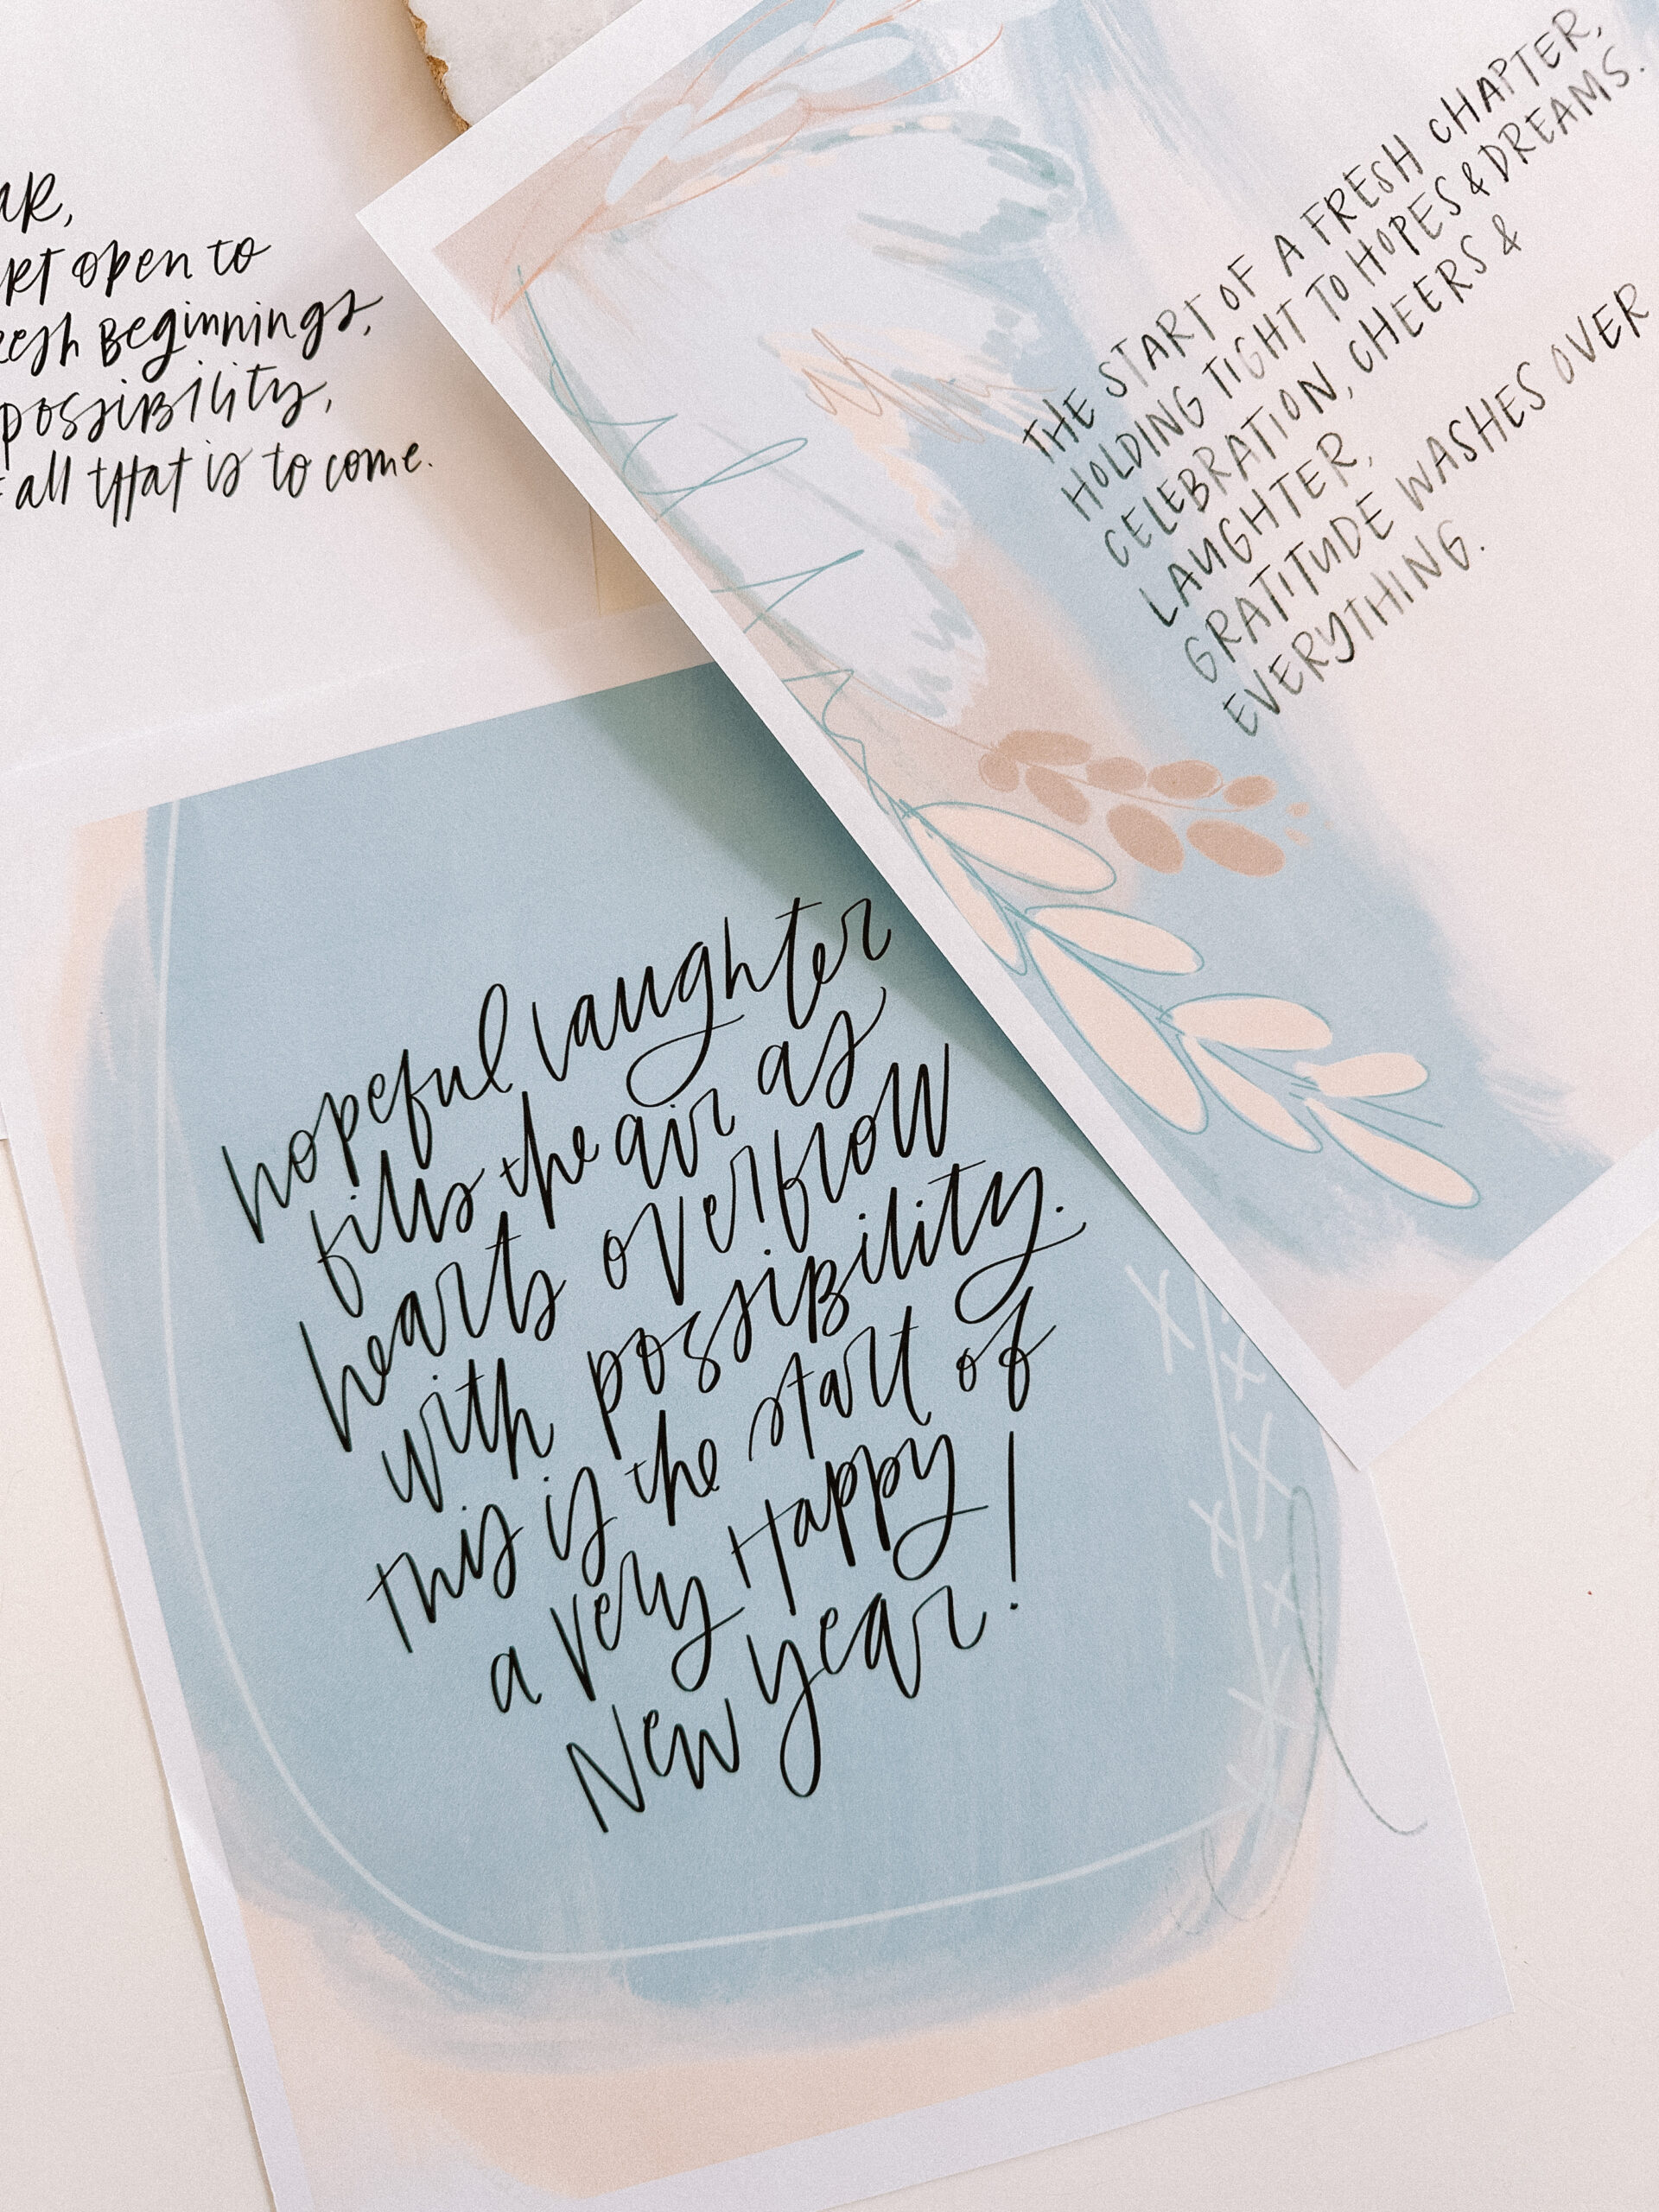 open to
Beginnings,
possibility,
all that is to come.
THE START OF A FRESH CHAPTER,
HOLDING TIGHT TO HOPES & DREAMS.
CELEBRATION, CHEERS &
LAUGHTER,
GRATITUDE WASHES OVER
EVERYTHING.
hopeful laughter
fills the air as
hearts overflow
with possibility.
this is the start of
a very Happy
New year!